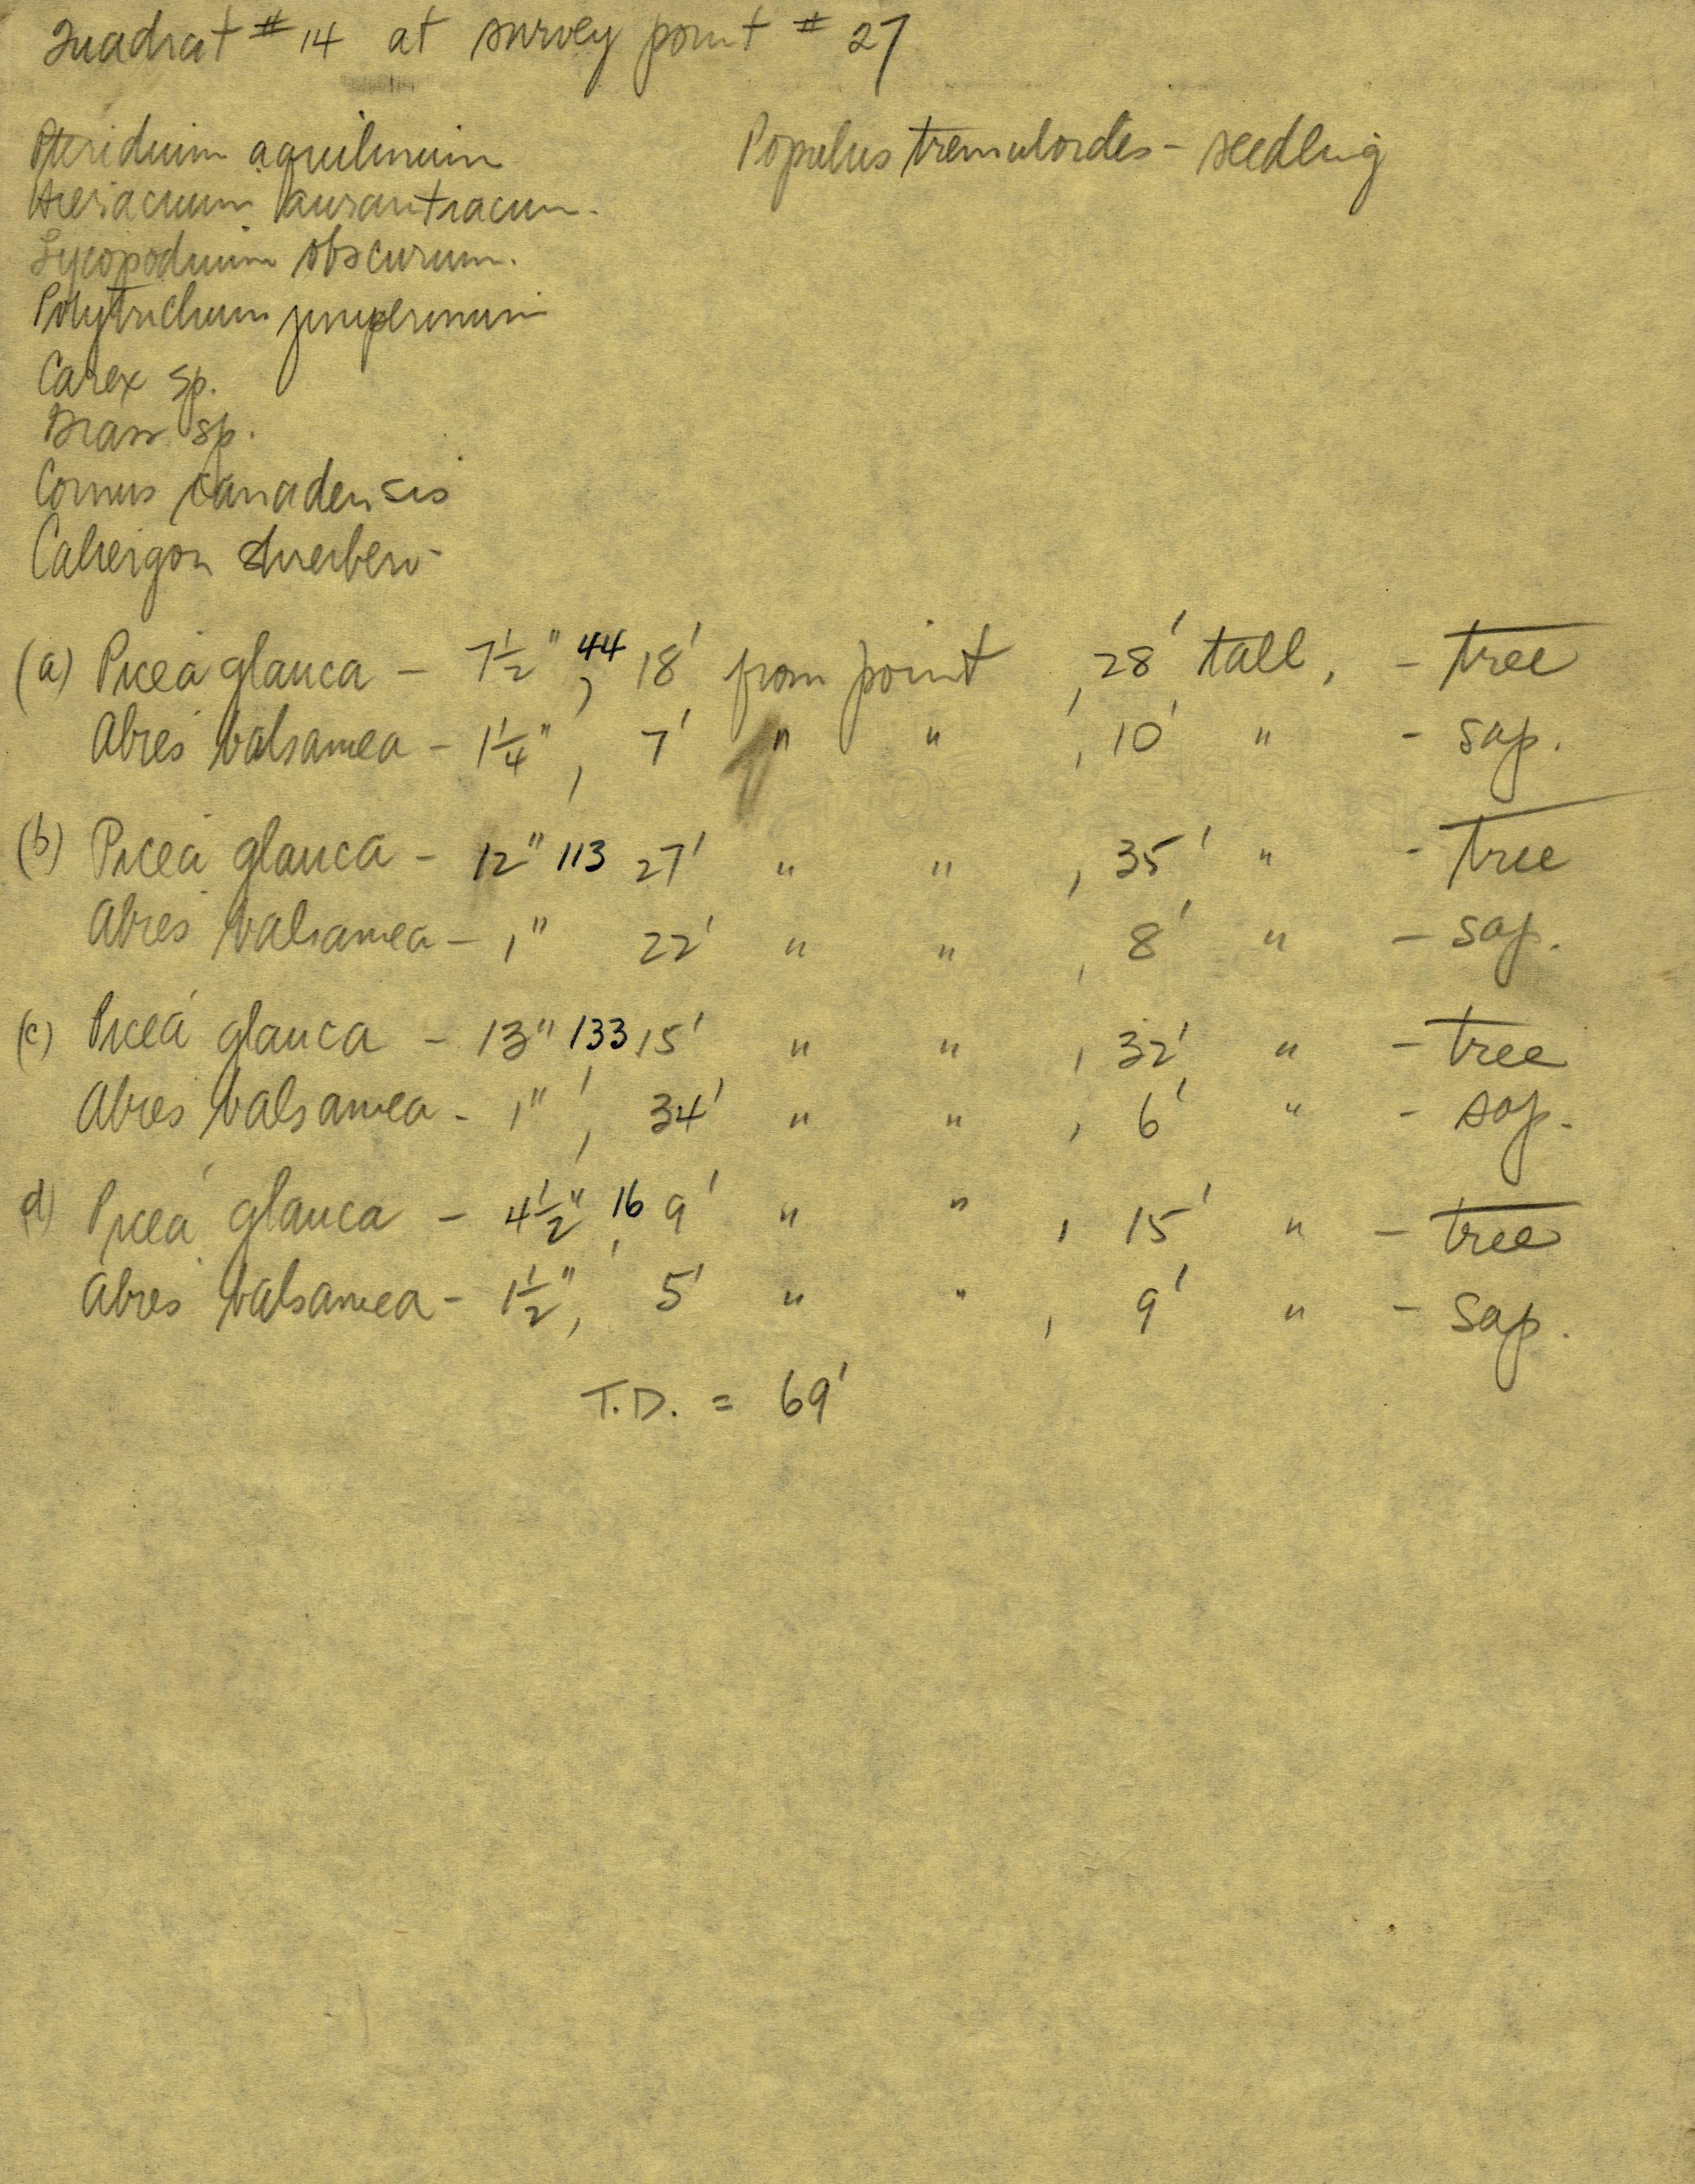 Quadrat #14 at survey point #27
Pteridium aquilinum Populus tremuloides - seedling
Hieracium aurantiacum.
Lycopodium obscurum.
Polytrichum juniperinum
Carex sp.
Grass sp.
Cornus canadensis
Calliergon schreberi
(a) Picea glauca - 7 1/2" 44, 18' from point, 28' tall, - tree
Abies balsamea - 1 1/4", 7' " ", 10' " - sap.
(b) Picea glauca - 12" 113 27' " ", 35' " - tree
Abies balsamea - 1" 22' " ", 8' " - sap.
(c) Picea glauca - 13" 133, 15' " ", 32' " - tree
Abies balsamea - 1", 34' " ", 6' " - sap.
d) Picea glauca - 4 1/2", 16 9' " ", 15' " - tree
Abies balsamea - 1 1/2", 5' " ", 9' " - sap.
T.D. = 69'